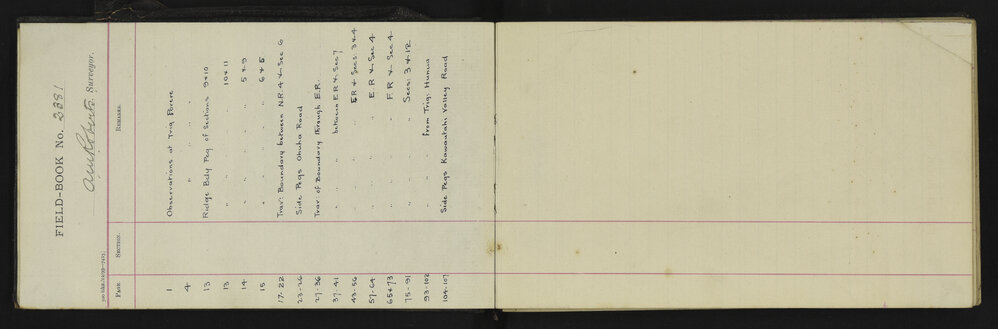 FIELD-BOOK No. 2381
Surveyor.
PAGE SECTION. REMARKS.
1 Observations at Trig Porere
4 " " "
13 Ridge Bdy Peg of Sections 9 & 10
13 " " " " 10 & 11
14 " " " " 5 & 9
15 " " " " 6 & 5
17-22 Trav: Boundary between N.R. 4 & Sec 6
23-26 Side Pegs Ohuha Road
27-36 Trav: of Boundary through E.R.
37-41 " " between E.R & Sec 7
43-56 " " " E.R & Secs 3 & 4
57-64 " " " E.R & Sec 4
65 & 73 " " " E.R & Sec 4
75-91 " " " Secs: 3 & 12
93-102 " " from Trig: Hunua
104-107 Side Pegs Kawautahi Valley Road